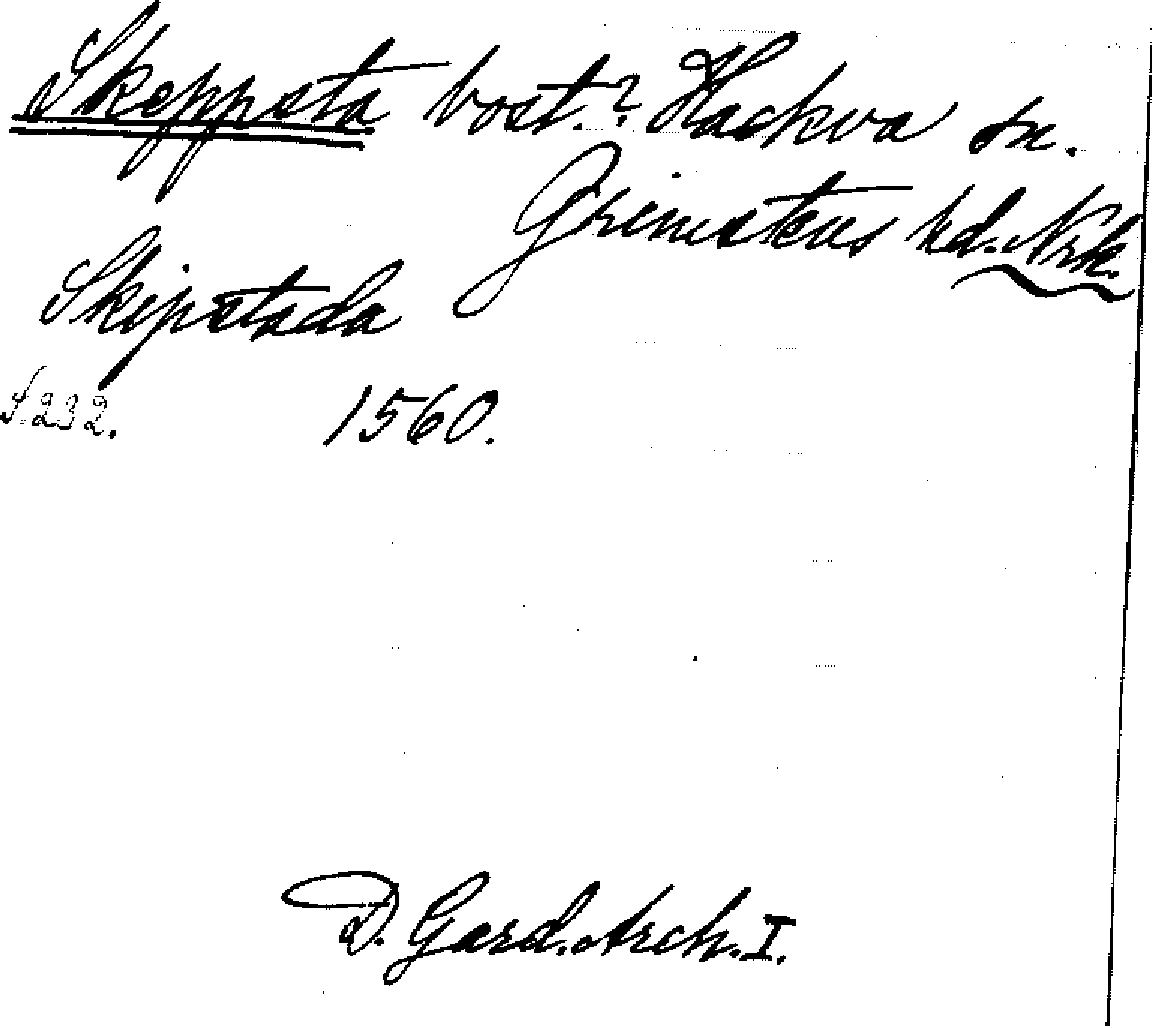 Skeppsta bost.? Hackva sn.
Grimstens hd. Nrk.
Skipstada
S. 232. 1560.
D. Gard. Arch. I.